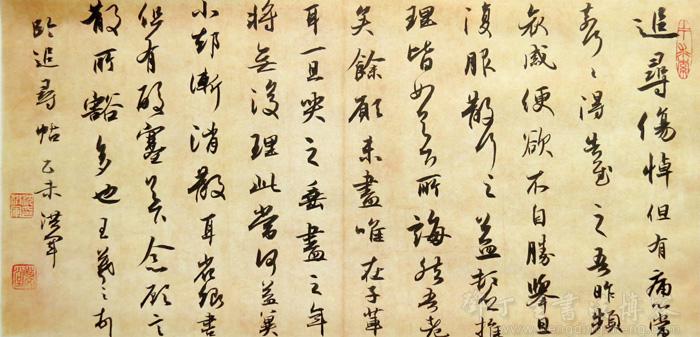 追尋傷悼但有痛心當
奈何〻得告慰之吾昨頻
哀感便欲不自勝舉旦
復服散行之益頓乏推
理皆如足下所誨然吾老
矣餘願未盡唯在子輩
耳一旦哭之垂盡之年
將無復理此當何益冀
小却漸消散耳省卿書
但有酸塞念顧言
散所豁多也王羲之頓首
臨追尋帖 乙未洪軍